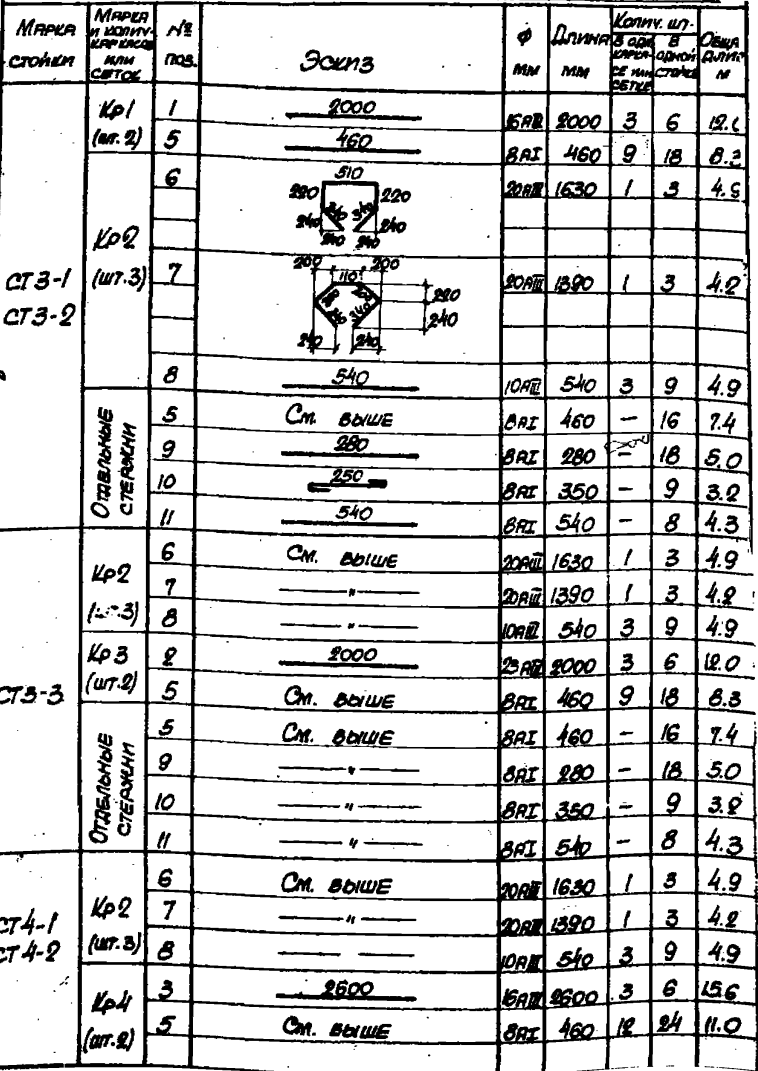 Марка стойки | Марка и колич. каркасов или сеток | № поз. | Эскиз | ф мм | Длина мм | Колич. шт. | Общ. длин. м
В одн. каркасе или сетке | В одной стойке
СТ3-1 СТ3-2
Кр1 (шт.2) | 1 | 2000 | 16АIII | 2000 | 3 | 6 | 12.
5 | 460 | 8АI | 460 | 9 | 18 | 8.3
Кр2 (шт.3) | 6 | 510 220 220 340 340 240 240 240 240 | 20АIII | 1630 | 1 | 3 | 4.9
7 | 200 110 200 220 240 340 240 240 | 20АIII | 1390 | 1 | 3 | 4.2
8 | 540 | 10АIII | 540 | 3 | 9 | 4.9
Отдельные стержни | 5 | См. выше | 8АI | 460 | — | 16 | 7.4
9 | 280 | 8АI | 280 | — | 18 | 5.0
10 | 250 | 8АI | 350 | — | 9 | 3.2
11 | 540 | 8АI | 540 | — | 8 | 4.3
СТ3-3
Кр2 (шт.3) | 6 | См. выше | 20АIII | 1630 | 1 | 3 | 4.9
7 | —"— | 20АIII | 1390 | 1 | 3 | 4.2
8 | —"— | 10АIII | 540 | 3 | 9 | 4.9
Кр3 (шт.2) | 2 | 2000 | АIII | 2000 | 3 | 6 | 12.0
5 | См. выше | 8АI | 460 | 9 | 18 | 8.3
Отдельные стержни | 5 | См. выше | 8АI | 460 | — | 16 | 7.4
9 | —"— | 8АI | 280 | — | 18 | 5.0
10 | —"— | 8АI | 350 | — | 9 | 3.2
11 | —"— | 8АI | 540 | — | 8 | 4.3
СТ4-1 СТ4-2
Кр2 (шт.3) | 6 | См. выше | 20АIII | 1630 | 1 | 3 | 4.9
7 | —"— | 20АIII | 1390 | 1 | 3 | 4.2
8 | — — | 10АIII | 540 | 3 | 9 | 4.9
Кр4 (шт.2) | 3 | 2600 | 16АIII | 2600 | 3 | 6 | 15.6
5 | См. выше | 8АI | 460 | 12 | 24 | 11.0